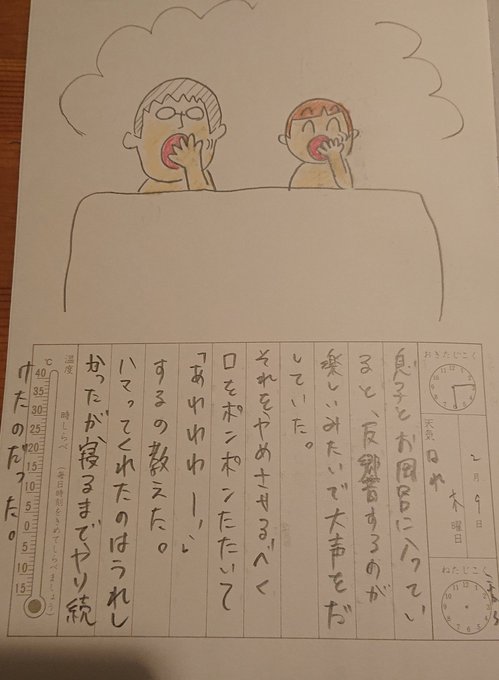 おきたじこく
2月9日
木曜日
天気 日れ
ねたじこく
息子とお風呂に入ってい
ると、反響するのが
楽しいみたいで大声をだ
していた。
それをやめさせるべく
口をポンポンたたいて
「あわわわー!」
するの教えた。
ハマってくれたのはうれし
かったが、寝るまでやり続
けたのだった。
温度 時しらべ (毎日時刻をきめてしらべましょう)
℃
40
35
30
25
20
15
10
5
0
5
10
15